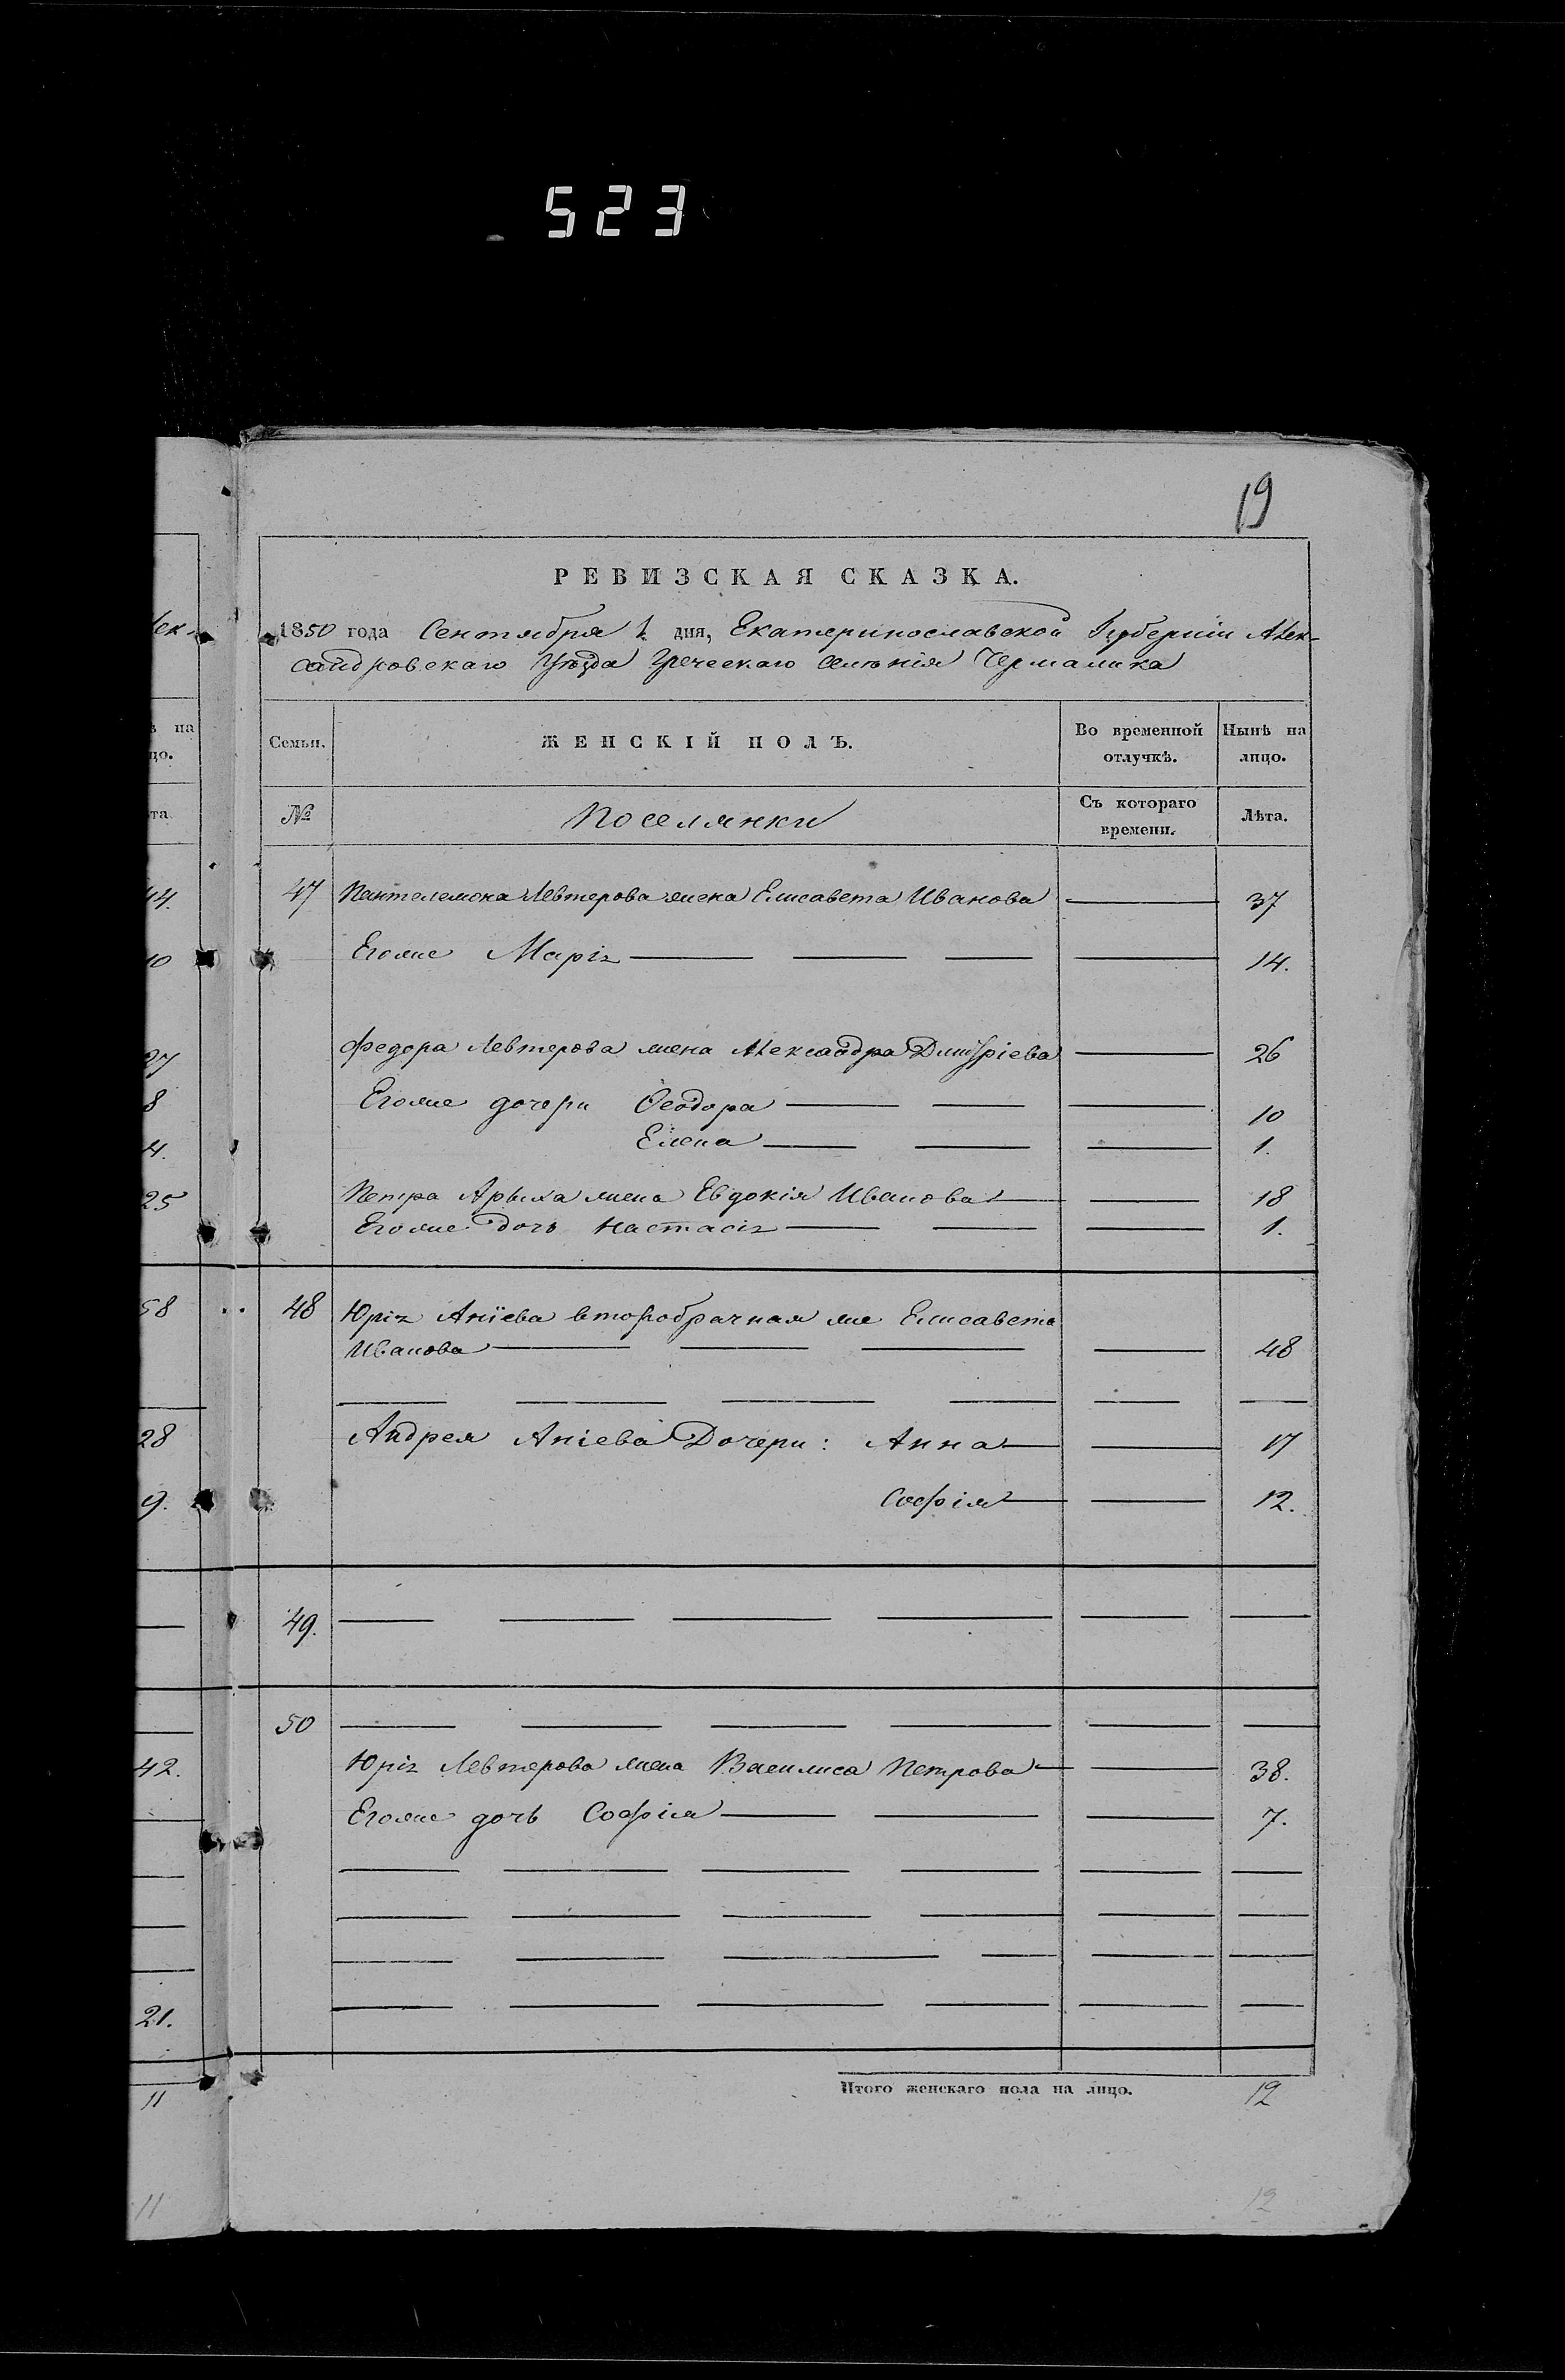 523
19
РЕВИЗСКАЯ СКАЗКА.
1850 года Сентября 1 дня, Екатеринославской Губернии Алек-
сандровскаго Уѣзда Греческаго селѣнія Чермалика
Семьи. ЖЕНСКІЙ ПОЛЪ. Во временной отлучкѣ. Нынѣ на лицо.
№ Поселянки Съ котораго времени. Лѣта.
47 Пантелемона Левтерова жена Елисавета Иванова 37
Егоже Марія 14.
Федора Левтерова жена Александра Дмитріева 26
Егоже дочери Ѳеодора 10
Елена 1.
Петра Арыха жена Евдокія Иванова 18
Егоже дочь Настасія 1.
48 Юрія Аніева второбрачная же Елисавета
Иванова 48
Андрея Аніева Дочери: Анна 17
Софія 12.
49.
50
Юрія Левтерова жена Василиса Петрова 38.
Егоже дочь Софія 7.
Итого женскаго пола на лицо. 12
12
лек-
на
цо.
та
44.
10
27
8
4.
25
58
28
9.
42.
21.
11
11